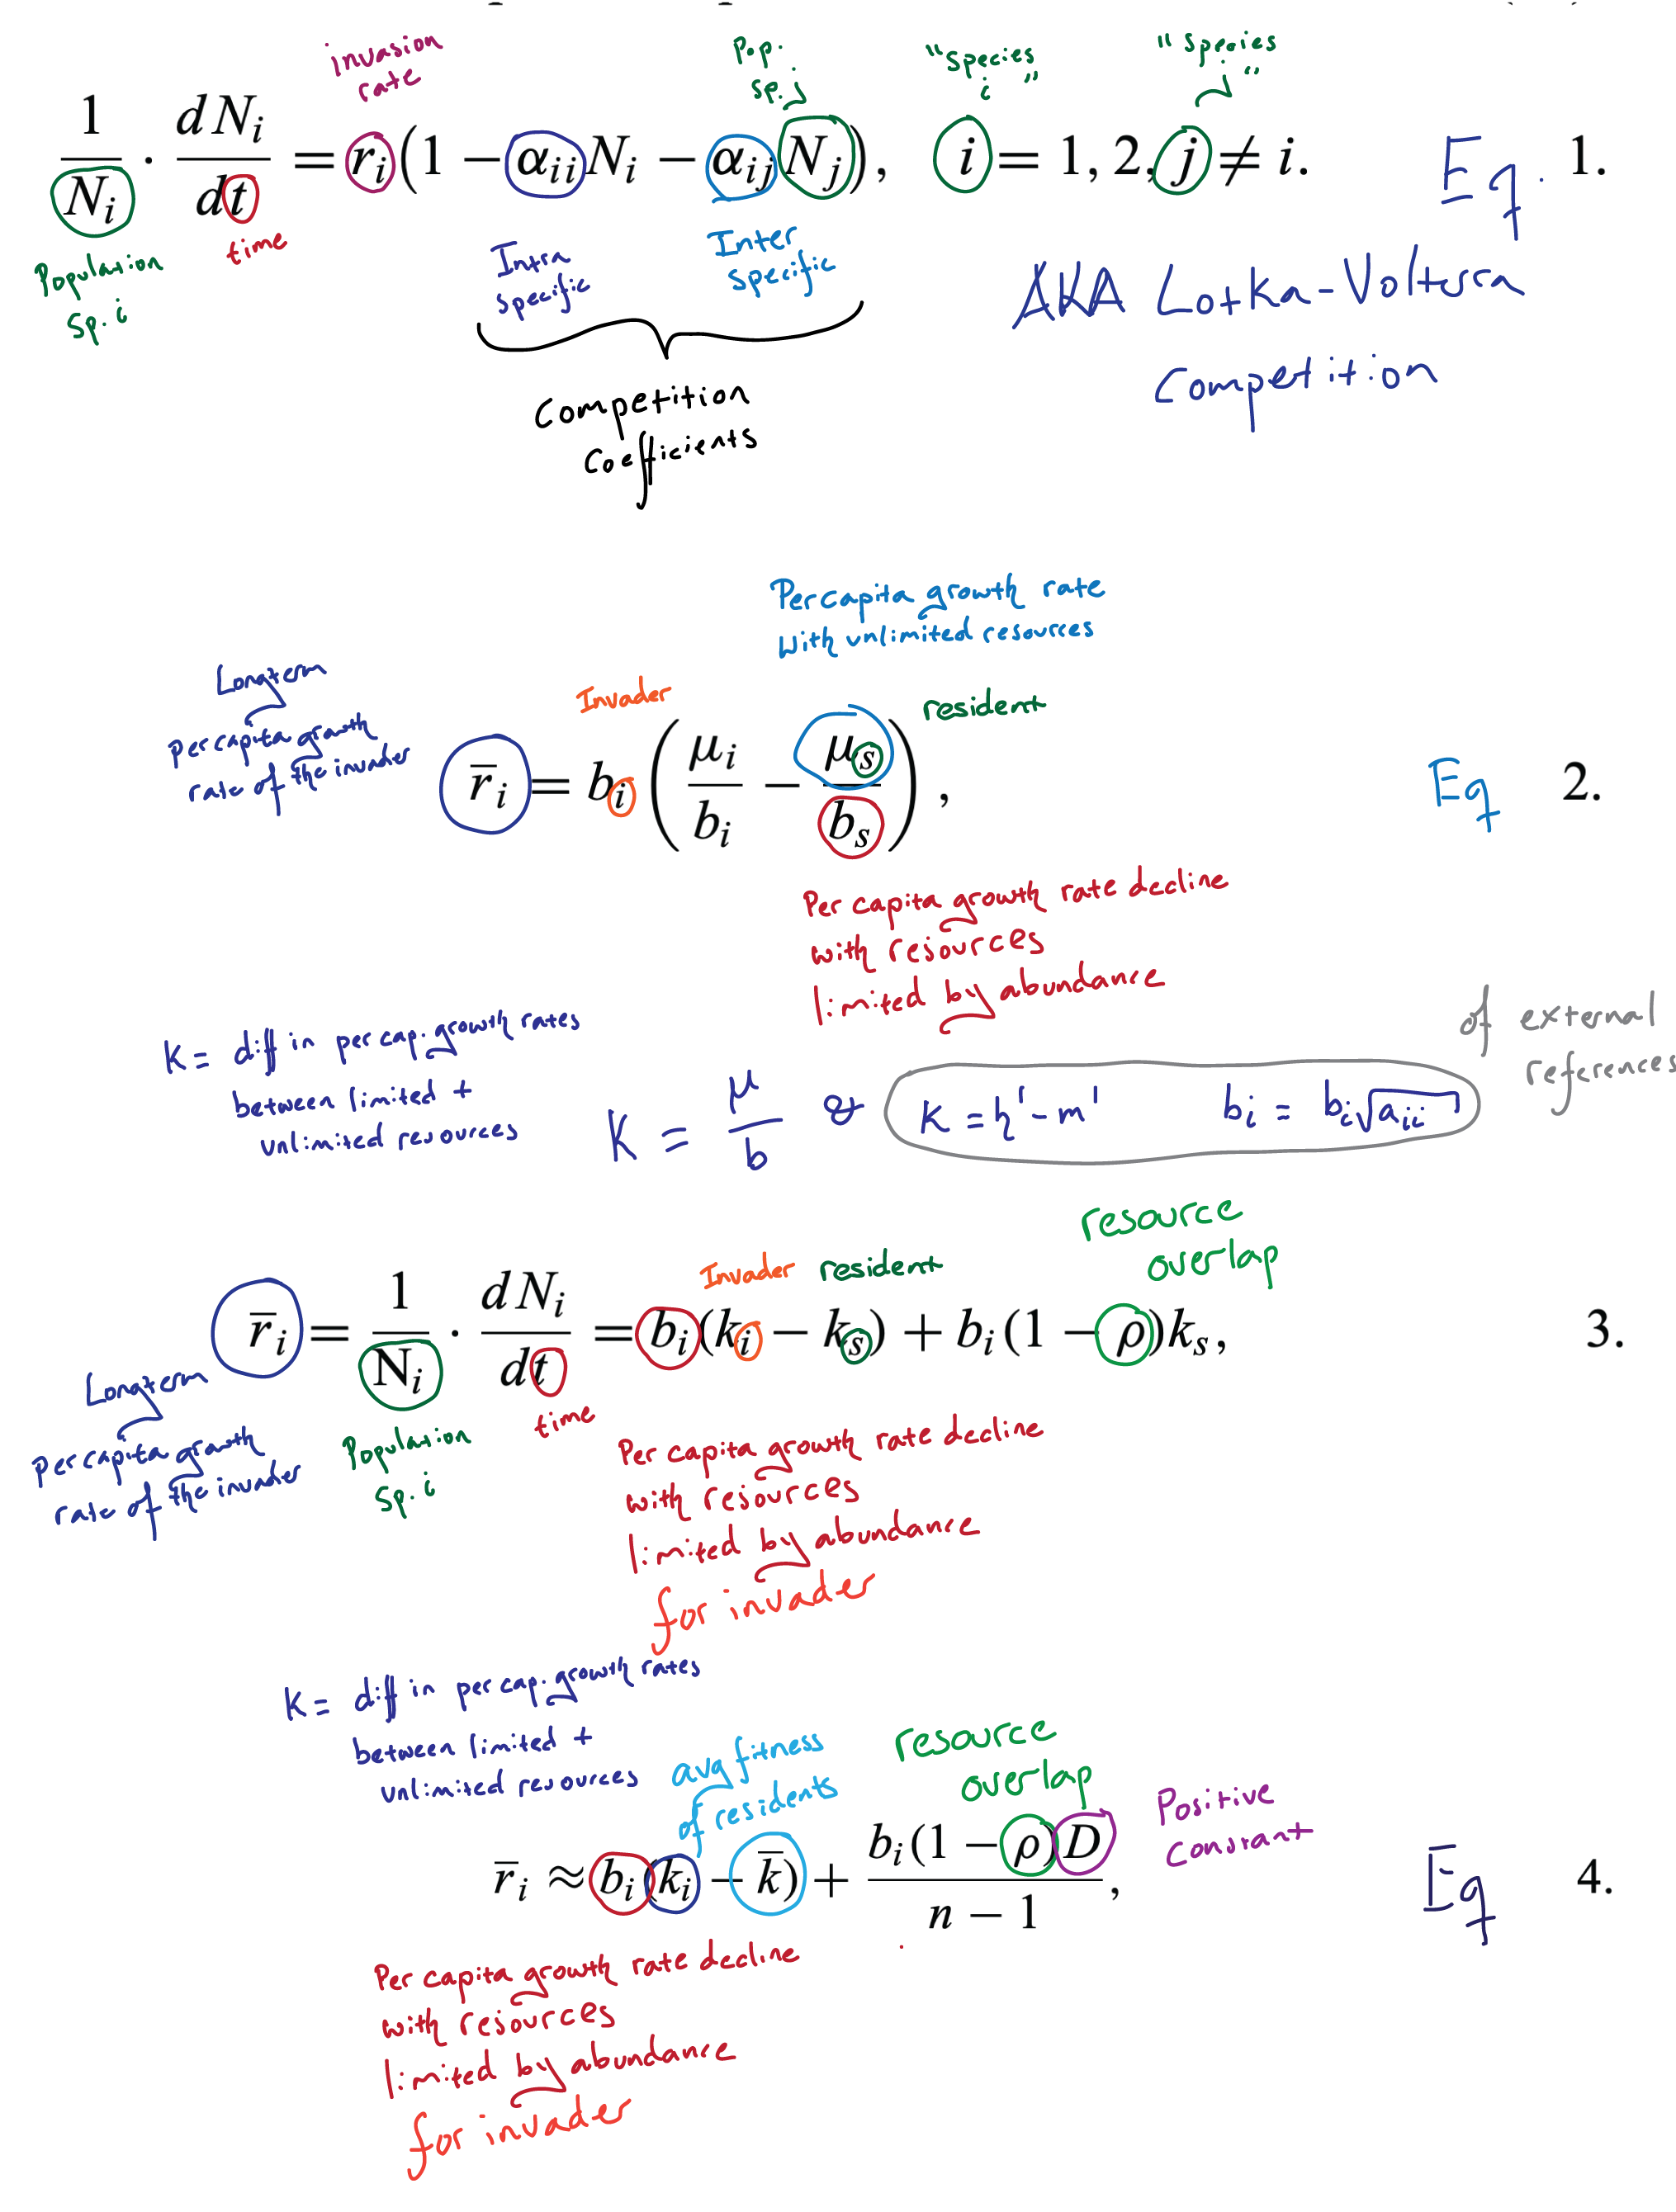 invasion
rate
Pop.
sp. j
"Species
i"
"Species
j"
1/N_i · dN_i/dt = r_i(1 − α_ii N_i − α_ij N_j), i = 1, 2, j ≠ i. Eq. 1.
Population
Sp. i
time
Intra
specific
Inter
specific
Competition
Coefficients
AKA Lotka-Volterra
Competition
Per capita growth rate
with unlimited resources
Longterm
per capita growth
rate of the invader
Invader
resident
r̅_i = b_i (μ_i/b_i − μ_s/b_s), Eq 2.
Per capita growth rate decline
with resources
limited by abundance
K = diff in per cap. growth rates
between limited +
unlimited resources
K = μ/b & K = h' − m' b_i = b_i√a_ii
of external
references
resource
overlap
Invader resident
r̅_i = 1/N_i · dN_i/dt = b_i(k_i − k_s) + b_i(1 − ρ)k_s, 3.
Longterm
per capita growth
rate of the invader
Population
Sp. i
time
Per capita growth rate decline
with resources
limited by abundance
for invader
K = diff in per cap. growth rates
between limited +
unlimited resources
avg fitness
of residents
resource
overlap
Positive
constant
r̅_i ≈ b_i(k_i − k̅) + b_i(1 − ρ)D/n − 1, Eq 4.
Per capita growth rate decline
with resources
limited by abundance
for invader